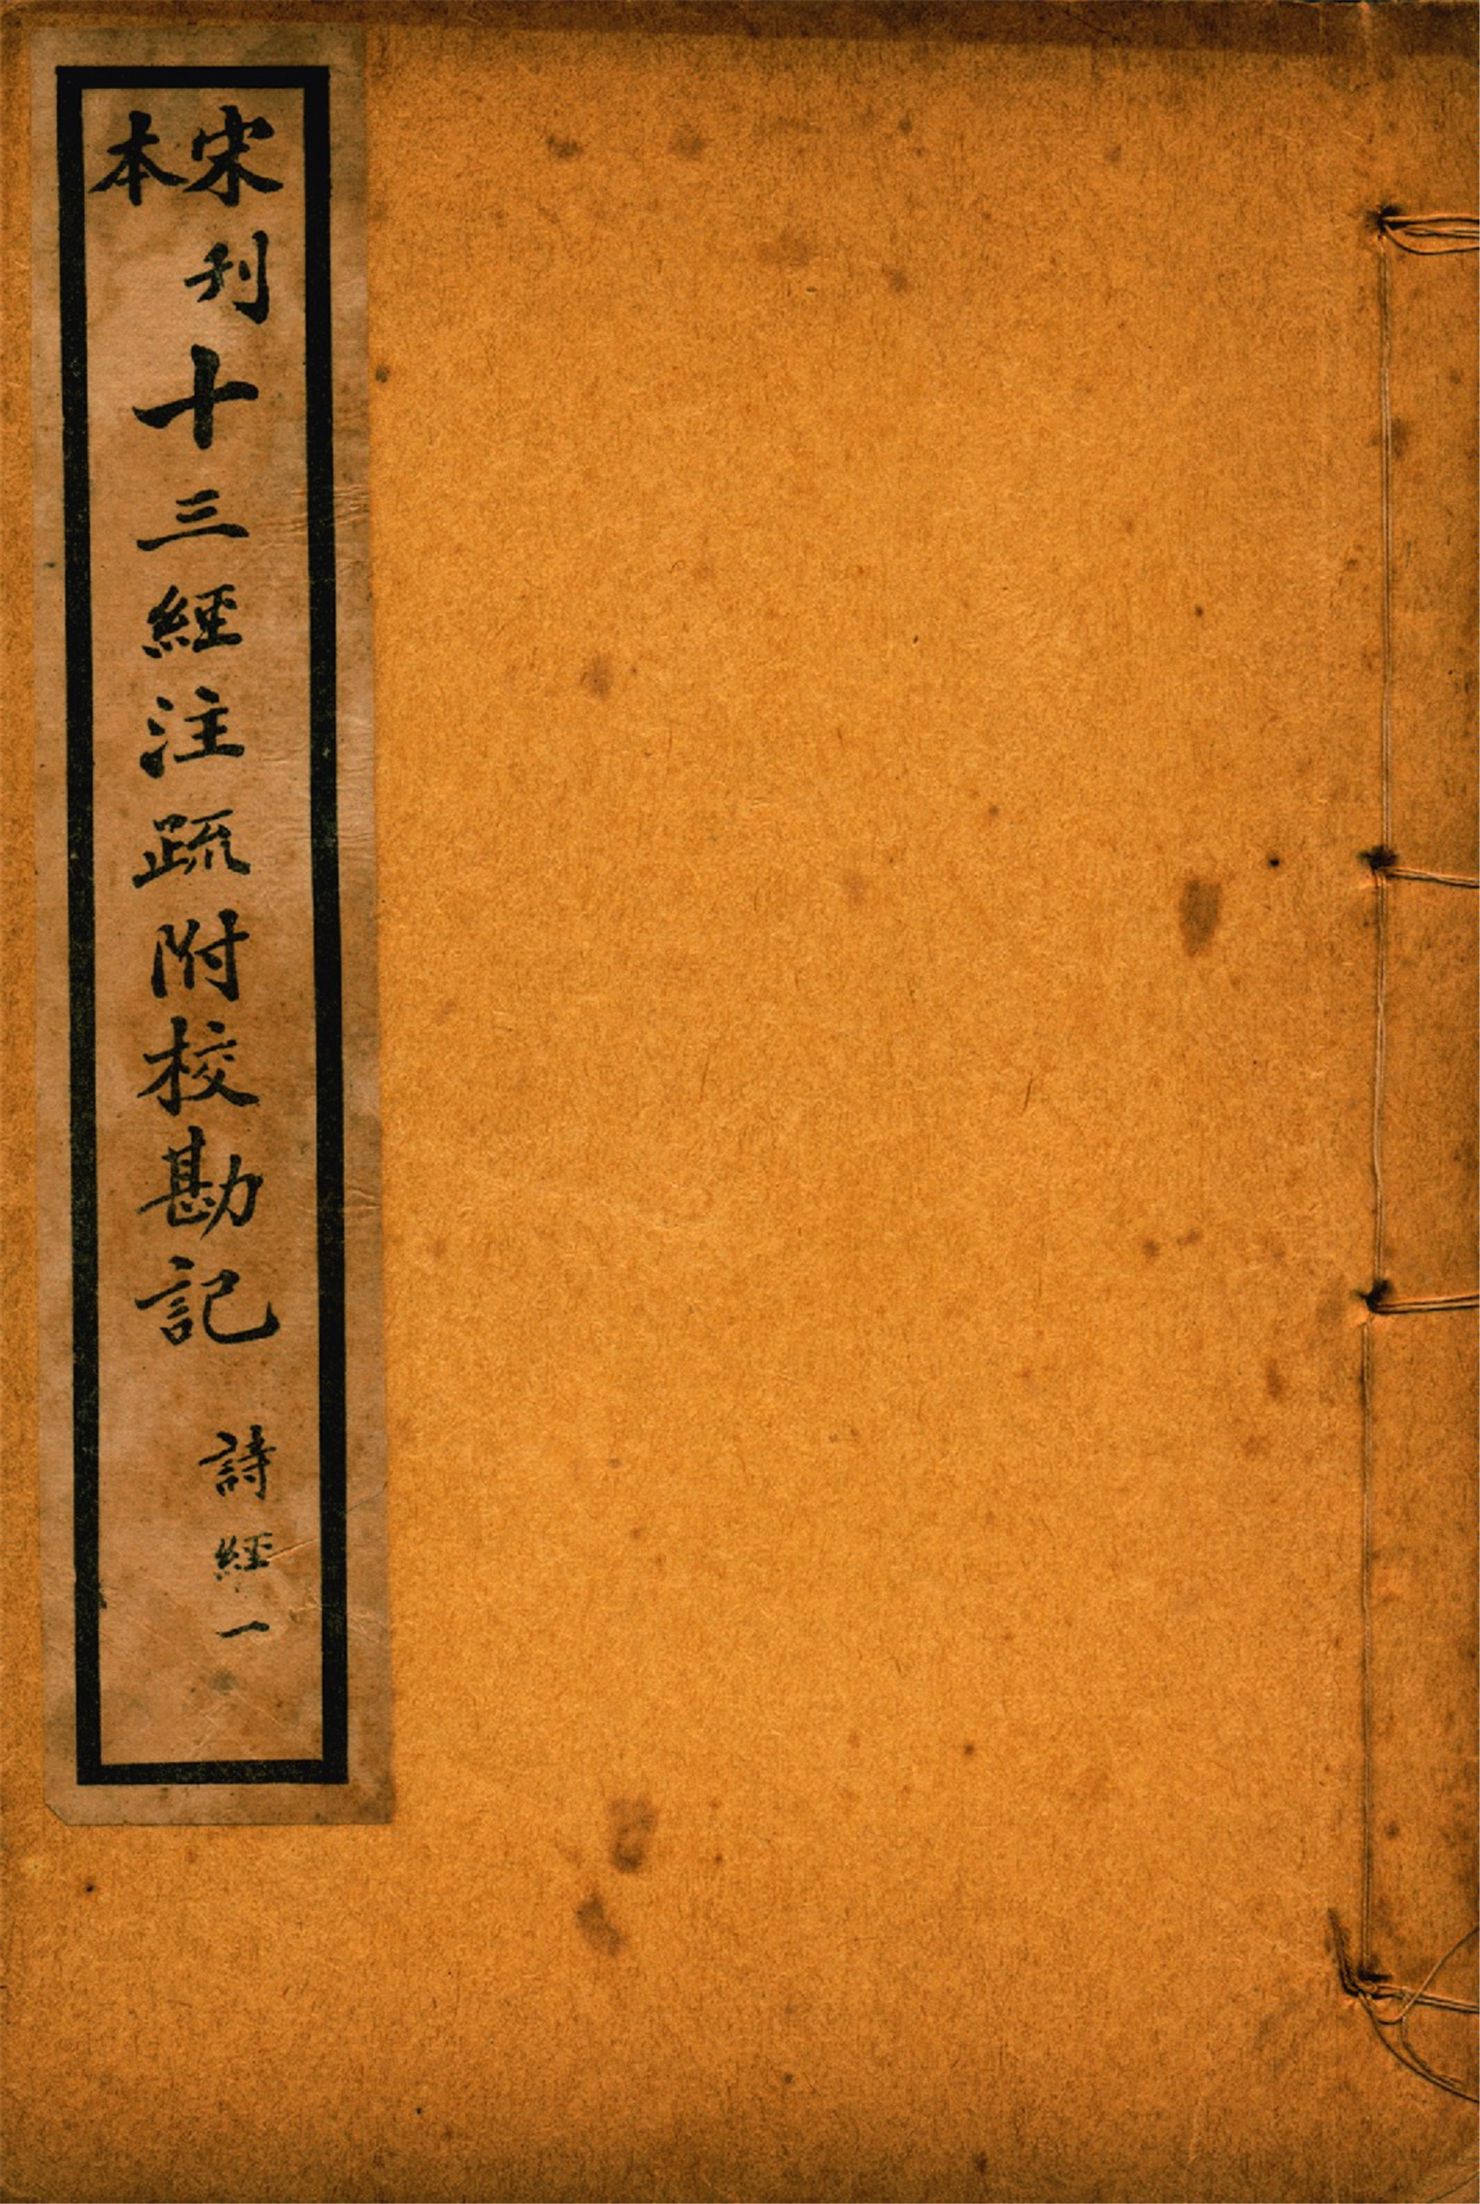 宋本
刊十三經注疏附校勘記
詩經一